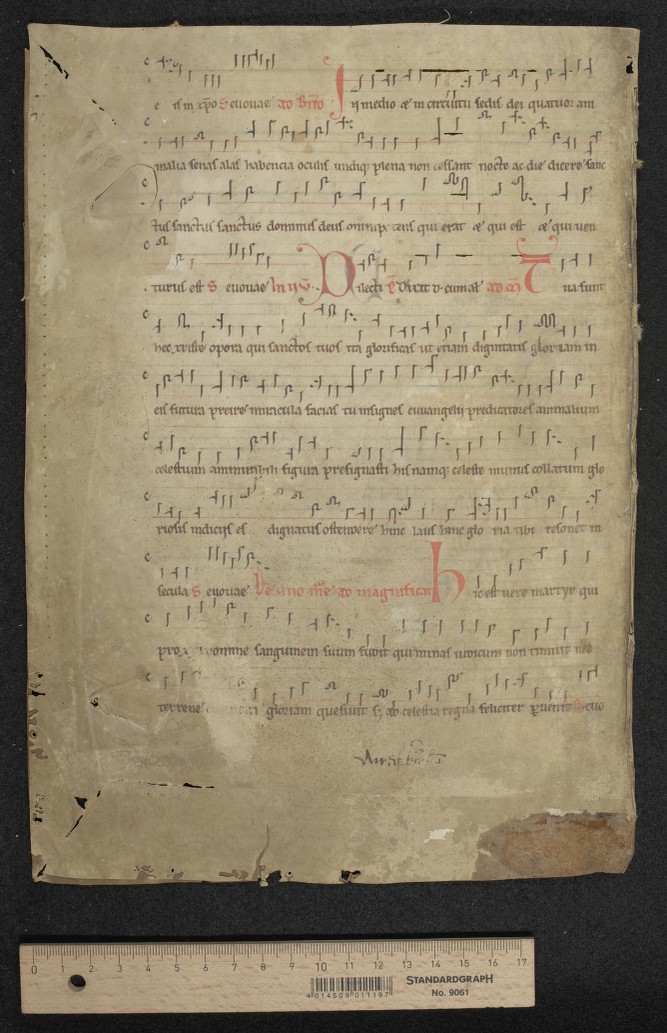 e is in xp̄o Seuouae ad bn̄d In medio & in circuitu sedis dei quatuor ani
malia senas alas habencia oculis undiqꝫ plena non cessant nocte ac die dicere sanc
tus sanctus sanctus dominus deus omnip̄ tens qui erat & qui est & qui uen
turus est S euouae In ij v̄ Dilecti Tua sunt
hec xpiste opera qui sanctos tuos ita glorificas ut etiam dignitatis gloriam in
eis futura preire miracula facias tu insignes euuangelii predicatores animalium
celestium ammirabili figura presignasti his namqꝫ celeste munus collatum glo
riosis indiciis es dignatus ostendere hinc laus hinc glo ria tibi resonet in
secula S euouae De uno mr̄e ad magnificat Hic est uere martyr qui
pro nomine sanguinem suum fudit qui minas iudicum non timuit nec
terrene gloriam quesiuit sꝫ ad celestia regna feliciter ꝑuenit Seuo
0 1 2 3 4 5 6 7 8 9 10 11 12 13 14 15 16 17
4 014509 011197
STANDARDGRAPH
No. 9061